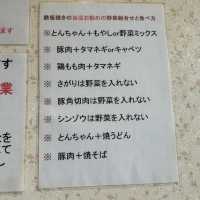 鉄板焼きの当店お勧めの野菜組合せと食べ方
※ とんちゃん＋もやしor野菜ミックス
※ 豚肉＋タマネギorキャベツ
※ 鶏もも肉＋タマネギ
※ さがりは野菜を入れない
※ 豚角切肉は野菜を入れない
※ シンゾウは野菜を入れない
※ とんちゃん＋焼うどん
※ 豚肉＋焼そば
ます
す
業
を
て
し